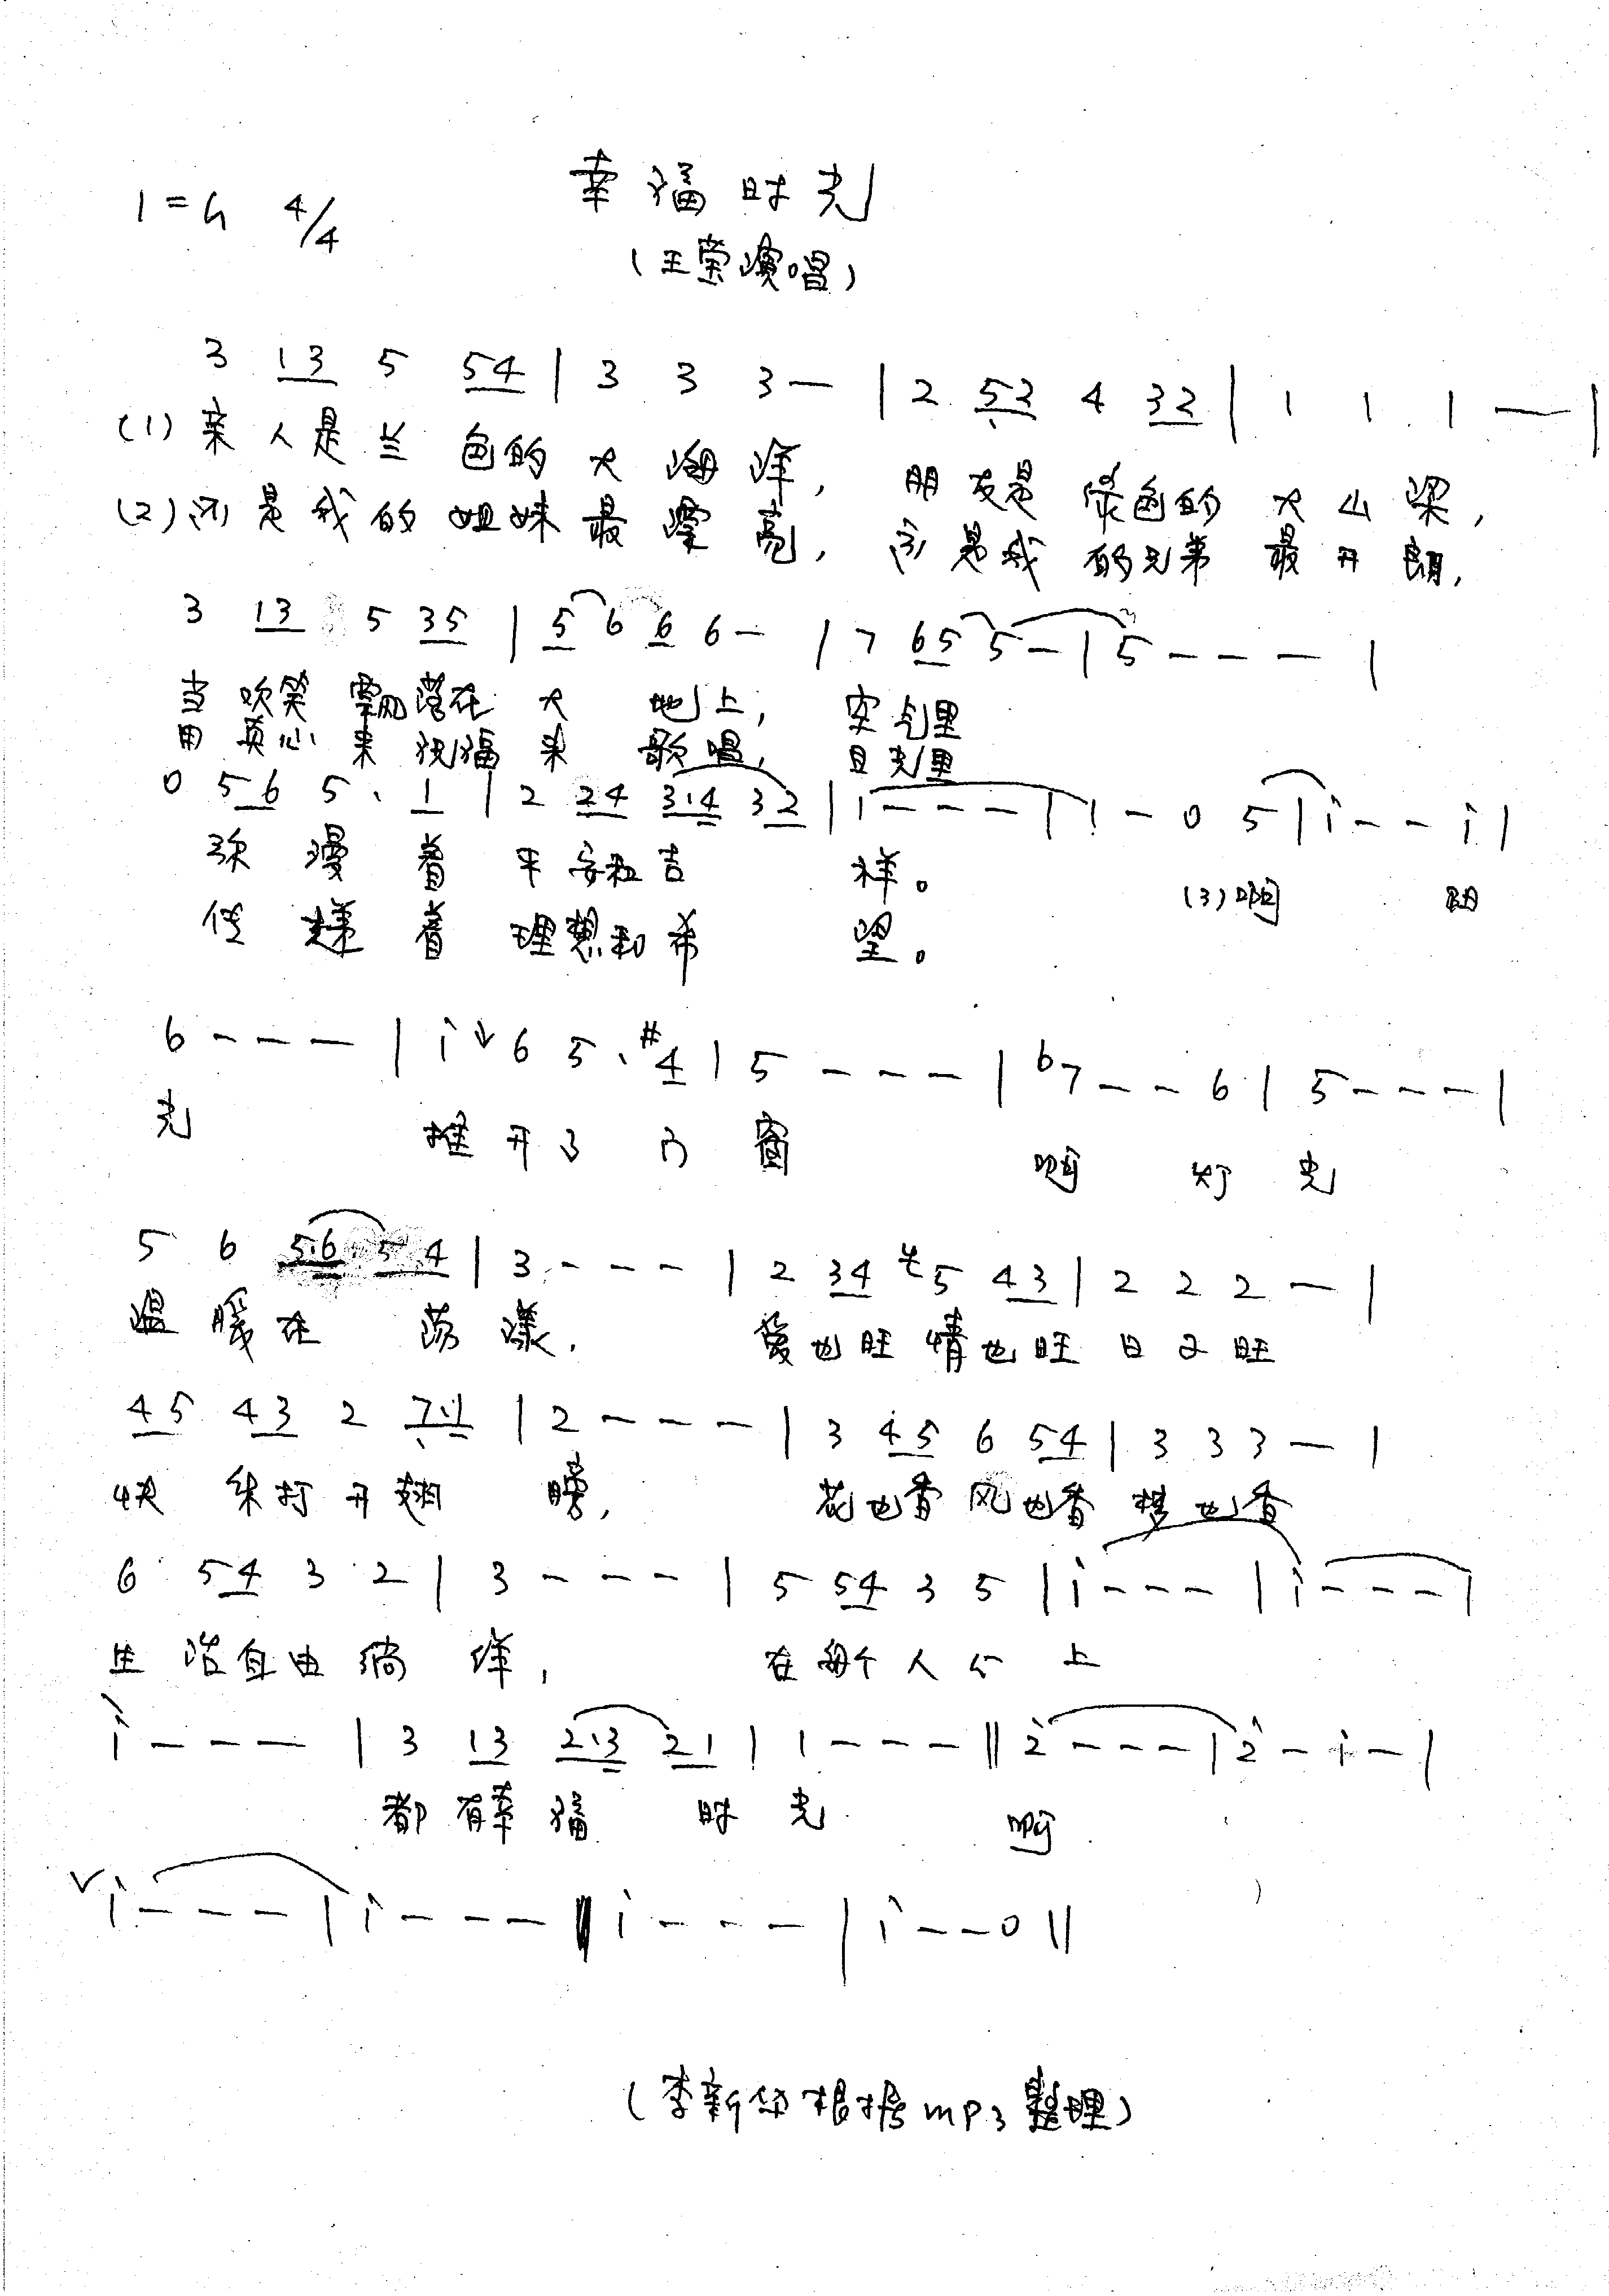 幸福时光
1=G 4/4
(王莹演唱)
3 13 5 54 | 3 3 3 — | 2 52 4 32 | 1 1 1 — |
(1)亲人是兰色的大海洋, 朋友是绿色的大山梁,
(2)就是我的姐妹最漂亮, 就是我的兄弟最开朗,
3 13 5 35 | 5 6 6 6 — | 7 65 5 — | 5 - - - |
当欢笑飘落在大地上, 空气里
用真心来祝福来歌唱, 目光里
0 56 5 · 1 | 2 24 3·4 32 | 1 - - - | 1 - 0 5 | i - - i |
弥漫着平安和吉祥。 (3)啊 阳
传递着理想和希望。
6 - - - | i ∨ 6 5 · #4 | 5 - - - | b7 - - 6 | 5 - - - |
光 推开了门窗 啊 灯光
5 6 5·6 54 | 3 - - - | 2 34 5 43 | 2 2 2 — |
温暖在荡漾, 爱也旺情也旺日子旺
45 43 2 7·1 | 2 - - - | 3 45 6 54 | 3 3 3 — |
快乐打开翅膀, 花也香风也香梦也香
6 54 3 2 | 3 - - - | 5 54 3 5 | i - - - | i - - - |
生活自由徜徉, 在每个人心上
i - - - | 3 13 2·3 21 | 1 - - - || 2 - - - | 2 - i - |
都有幸福时光 啊
∨ i - - - | i - - - || i - - - | i - - 0 ||
(李新华根据mp3整理)